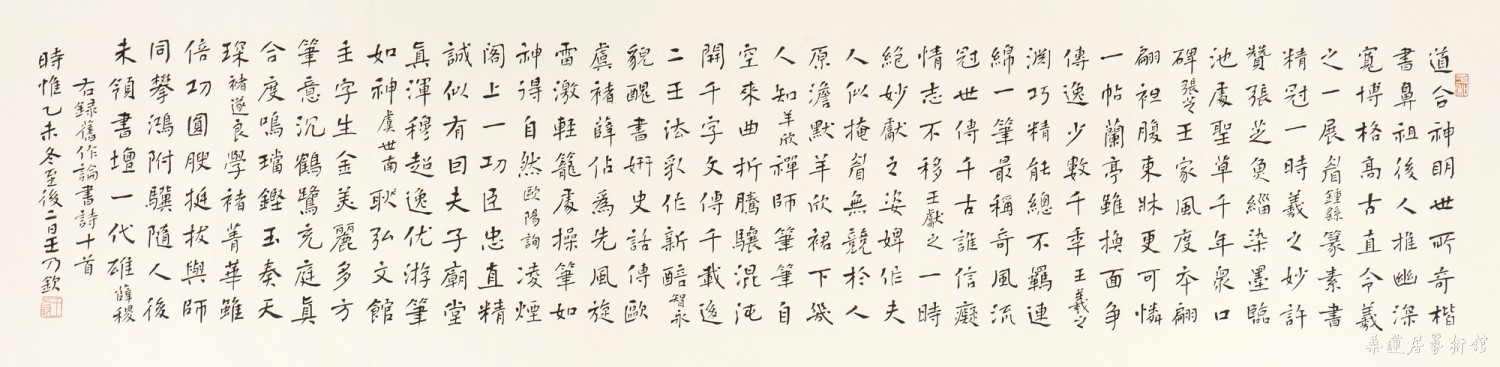 道合神明世所奇楷
書鼻祖後人推幽深
寬博格高古直令羲
之一展眉鍾繇篆素書
精冠一時羲之妙許
贊張芝魚緇染墨臨
池處聖草千年眾口
碑張芝王家風度本翩
翩袒腹東牀更可憐
一帖蘭亭雖換面爭
傳逸少數千年王羲之
渊巧精能總不羈連
綿一筆最稱奇風流
冠世傳千古誰信癡
情志不移王獻之一時
絕妙獻之姿婢作夫
人似掩眉無競於人
原澹默羊欣裙下幾
人知羊欣禪師筆筆自
空來曲折騰驤混沌
開千字文傳千載返
二王法乳作新醅智永
貌醜書妍史話傳歐
虞褚薛佔爲先風旋
雷激輕籠處操筆如
神得自然歐陽詢凌煙
閣上一功臣忠直精
誠似有因夫子廟堂
真渾穆超逸优游筆
如神虞世南耿弘文館
主字生金美麗多方
筆意沉鶴鷺充庭真
合度鳴璫鏗玉奏天
琛褚遂良學褚菁華雖
倍功圓腴挺拔與師
同攀鴻附驥隨人後
未領書壇一代雄薛稷
右録舊作論書詩十首
時惟乙未冬至後二日王乃欽
桑蓮居藝術館